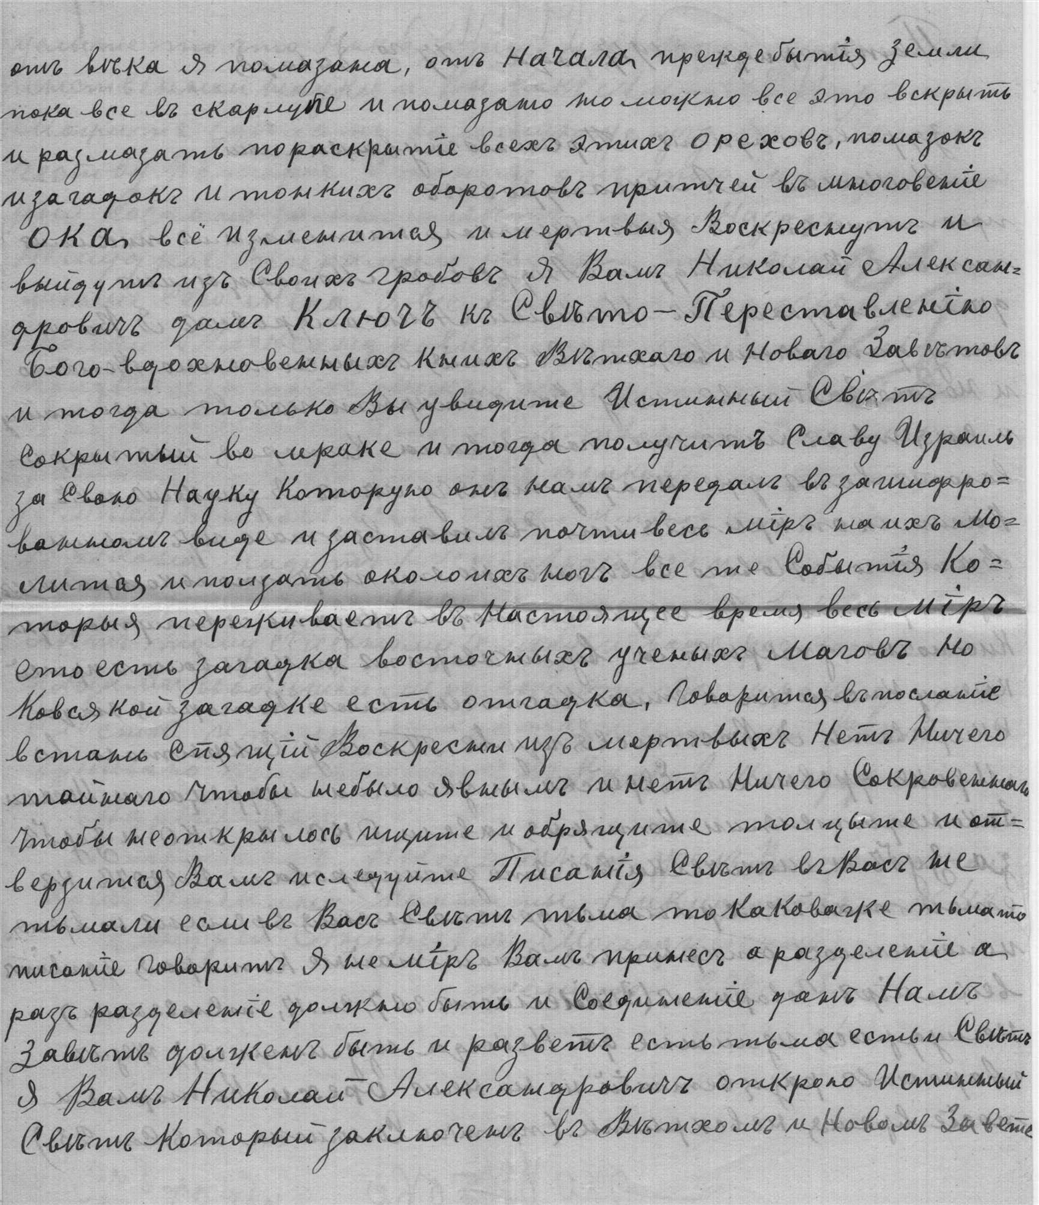 отъ вѣка я помазана, отъ Начала преждебытія Земли
пока все въ скарлупе и помазато но можно все это вскрыть
и размазать пораскрытіе всехъ этихъ ореховъ, помазокъ
изагадокъ и тонкихъ оборотовъ притчей въ многовеніе
ока всё изменится и мертвыя Воскреснутъ и
выйдутъ изъ Своихъ гробовъ я Вамъ Николай Алексан=
дровичъ дамъ Ключъ къ Свѣто-Переставленію
Бого-вдохновенныхъ книхъ Вѣтхаго и Новаго Завѣтовъ
и тогда только Вы увидите Истинный Свѣтъ
Сокрытый во мраке и тогда получитъ Славу Израиль
за Свою Науку Которую онъ намъ передалъ въ зашифро=
ванномъ виде и заставилъ почти весь міръ на ихъ Мо=
лится и ползать околоихъ ногъ все те Событія Ко=
торыя переживаетъ въ Настоящее время весь Міръ
ето есть загадка восточныхъ ученыхъ Маговъ но
Ковсякой загадке есть отгадка, Говарится въ посланіе
встань спящій Воскресни изъ мертвыхъ Нетъ Ничего
тайнаго Чтобы небыло явнымъ и нетъ Ничего Сокровеннаго
Чтобы неоткрылось ищите и обрящите толцыте и от=
верзится Вамъ иследуйте Писанія Свѣтъ въ Васъ не
тьмали если въ Васъ Свѣтъ тьма то Каковаже тьма то
писаніе говаритъ Я не міръ Вамъ принесъ а разделеніе а
разъ разделеніе должно быть и Соединеніе данъ Намъ
Завѣтъ долженъ быть и разветъ есть тьма есть и Свѣтъ
я Вамъ Николай Александровичъ открою Истинный
Свѣтъ Который заключенъ въ Вѣтхомъ и Новомъ Завете